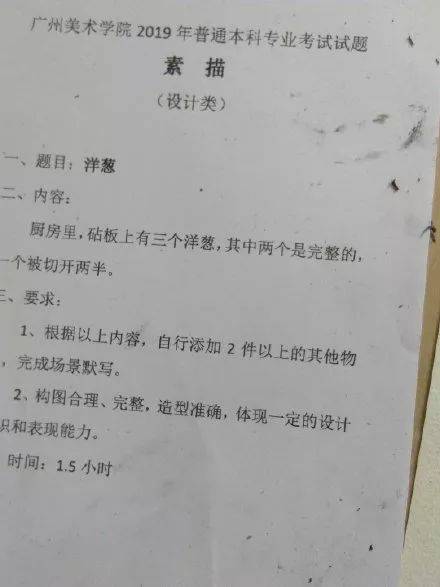 广州美术学院 2019 年普通本科专业考试试题
素 描
（设计类）
一、题目：洋葱
二、内容：
厨房里，砧板上有三个洋葱，其中两个是完整的，
一个被切开两半。
三、要求：
1、根据以上内容，自行添加 2 件以上的其他物
，完成场景默写。
2、构图合理、完整，造型准确，体现一定的设计
识和表现能力。
时间：1.5 小时